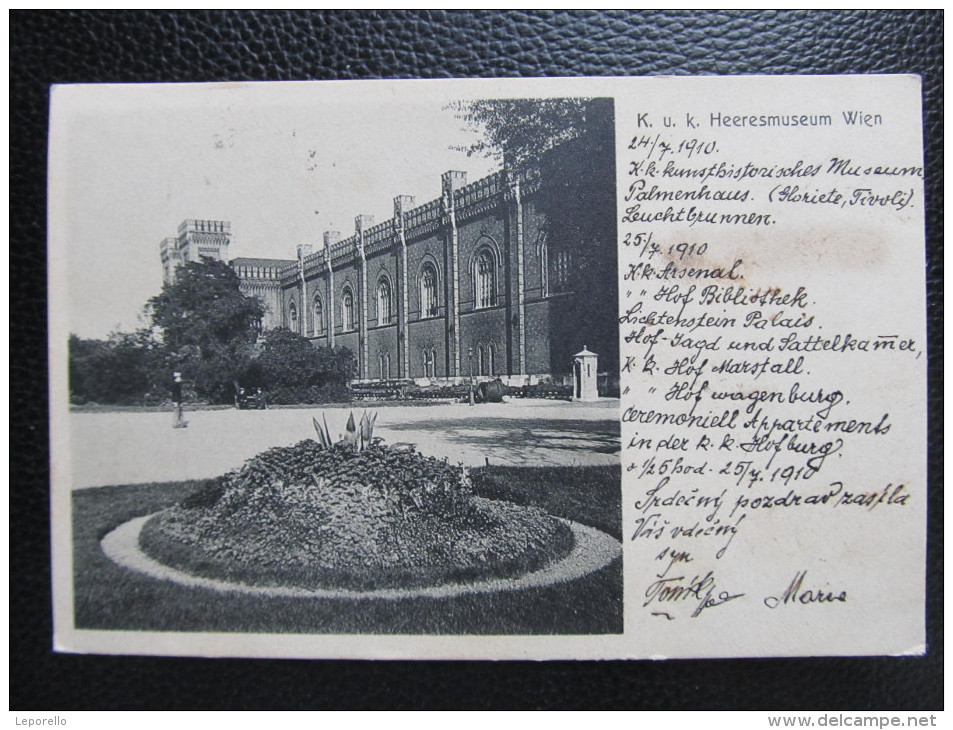 K. u. k. Heeresmuseum Wien
24/7. 1910.
K. k. kunsthistorisches Museum
Palmenhaus. (Gloriete, Tivoli).
Leuchtbrunnen.
25/7. 1910
K. k. Arsenal.
" " Hof Bibliothek.
Lichtenstein Palais.
Hof-Jagd und Sattelkam̅er,
K. k. Hof Marstall.
" " Hof wagenburg.
Ceremoniell Appartements
in der k. k. Hofburg.
o 1/2 5 hod. 25/7. 1910
Srdečný pozdrav zasýla
Váš vděčný
syn
Toník Marie
Leporello
www.delcampe.net